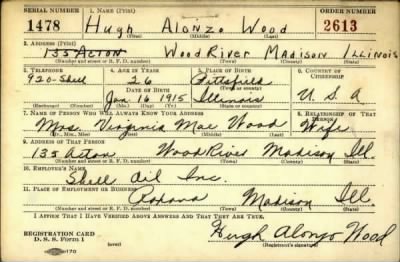 SERIAL NUMBER 1. NAME (Print) ORDER NUMBER
1478 Hugh Alonzo Wood 2613
(First) (Middle) (Last)
2. ADDRESS (Print)
135 ACTON Wood River Madison ILLINOIS
(Number and street or R. F. D. number) (Town) (County) (State)
3. TELEPHONE 4. AGE IN YEARS 5. PLACE OF BIRTH 6. COUNTRY OF CITIZENSHIP
920-Shell 26 Pittsfield
DATE OF BIRTH (Town or county)
Jan 16 1915 Illinois U.S.A
(Exchange) (Number) (Mo.) (Day) (Yr.) (State or country)
7. NAME OF PERSON WHO WILL ALWAYS KNOW YOUR ADDRESS 8. RELATIONSHIP OF THAT PERSON
Mrs. Virginia Mae Wood Wife
(Mr., Mrs., Miss) (First) (Middle) (Last)
9. ADDRESS OF THAT PERSON
135 Acton Wood River Madison Ill.
(Number and street or R. F. D. number) (Town) (County) (State)
10. EMPLOYER'S NAME
Shell Oil Inc.
11. PLACE OF EMPLOYMENT OR BUSINESS
Roxana Madison Ill.
(Number and street or R. F. D. number) (Town) (County) (State)
I AFFIRM THAT I HAVE VERIFIED ABOVE ANSWERS AND THAT THEY ARE TRUE.
REGISTRATION CARD
D. S. S. Form 1 Hugh Alonzo Wood
(Registrant's signature)